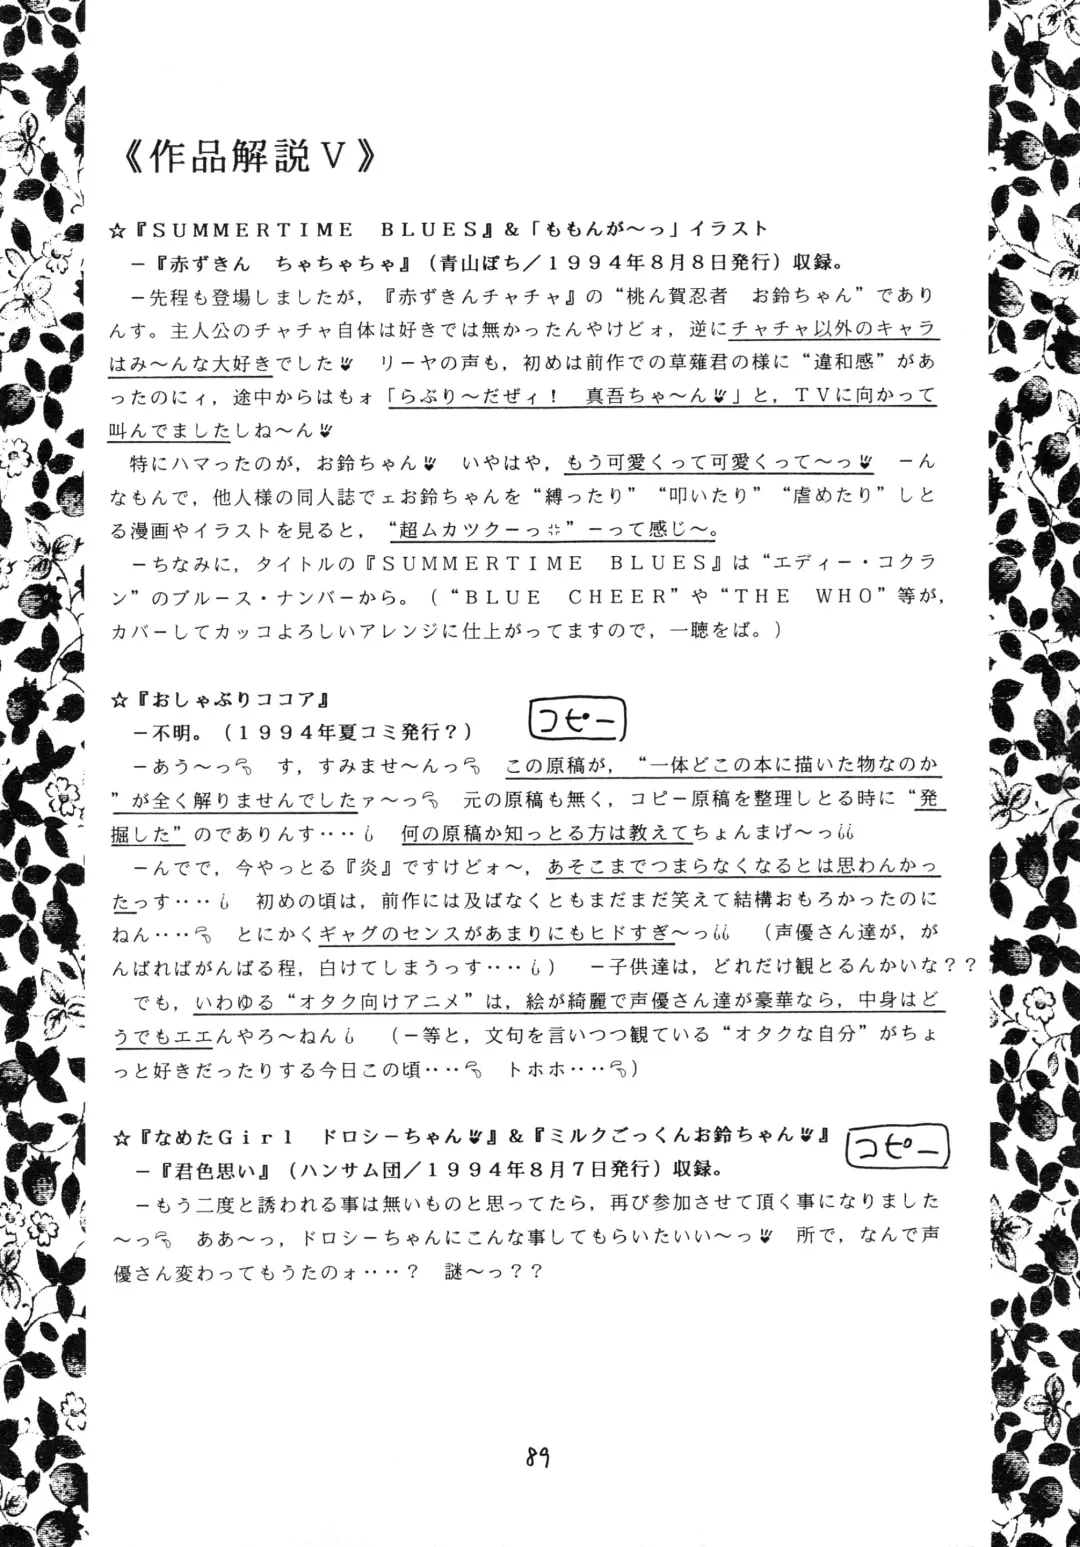 《作品解説Ⅴ》
☆『ＳＵＭＭＥＲＴＩＭＥ　ＢＬＵＥＳ』＆「ももんが～っ」イラスト
－『赤ずきん　ちゃちゃちゃ』（青山ぽち／１９９４年８月８日発行）収録。
－先程も登場しましたが，『赤ずきんチャチャ』の“桃ん賀忍者　お鈴ちゃん”であり
んす。主人公のチャチャ自体は好きでは無かったんやけどォ，逆にチャチャ以外のキャラ
はみ～んな大好きでした　リーヤの声も，初めは前作での草薙君の様に“違和感”があ
ったのにィ，途中からはもォ「らぶり～だぜィ！　真吾ちゃ～ん」と，ＴＶに向かって
叫んでましたしね～ん
特にハマったのが，お鈴ちゃん　いやはや，もう可愛くって可愛くって～っ　－ん
なもんで，他人様の同人誌でェお鈴ちゃんを“縛ったり”“叩いたり”“虐めたり”しと
る漫画やイラストを見ると，“超ムカツクーっ”－って感じ～。
－ちなみに，タイトルの『ＳＵＭＭＥＲＴＩＭＥ　ＢＬＵＥＳ』は“エディー・コクラ
ン”のブルース・ナンバーから。（“ＢＬＵＥ　ＣＨＥＥＲ”や“ＴＨＥ　ＷＨＯ”等が，
カバーしてカッコよろしいアレンジに仕上がってますので，一聴をば。）
☆『おしゃぶりココア』
コピー
－不明。（１９９４年夏コミ発行？）
－あう～っ　す，すみませ～んっ　この原稿が，“一体どこの本に描いた物なのか
”が全く解りませんでしたァ～っ　元の原稿も無く，コピー原稿を整理しとる時に“発
掘した”のでありんす‥‥　何の原稿か知っとる方は教えてちょんまげ～っ
－んでで，今やっとる『炎』ですけどォ～，あそこまでつまらなくなるとは思わんかっ
たっす‥‥　初めの頃は，前作には及ばなくともまだまだ笑えて結構おもろかったのに
ねん‥‥　とにかくギャグのセンスがあまりにもヒドすぎ～っ　（声優さん達が，が
んばればがんばる程，白けてしまうっす‥‥）　－子供達は，どれだけ観とるんかいな？？
でも，いわゆる“オタク向けアニメ”は，絵が綺麗で声優さん達が豪華なら，中身はど
うでもエエんやろ～ねん　（－等と，文句を言いつつ観ている“オタクな自分”がちょ
っと好きだったりする今日この頃‥‥　トホホ‥‥）
☆『なめたＧｉｒｌ　ドロシーちゃん』＆『ミルクごっくんお鈴ちゃん』
コピー
－『君色思い』（ハンサム団／１９９４年８月７日発行）収録。
－もう二度と誘われる事は無いものと思ってたら，再び参加させて頂く事になりました
～っ　ああ～っ，ドロシーちゃんにこんな事してもらいたいい～っ　所で，なんで声
優さん変わってもうたのォ‥‥？　謎～っ？？
89